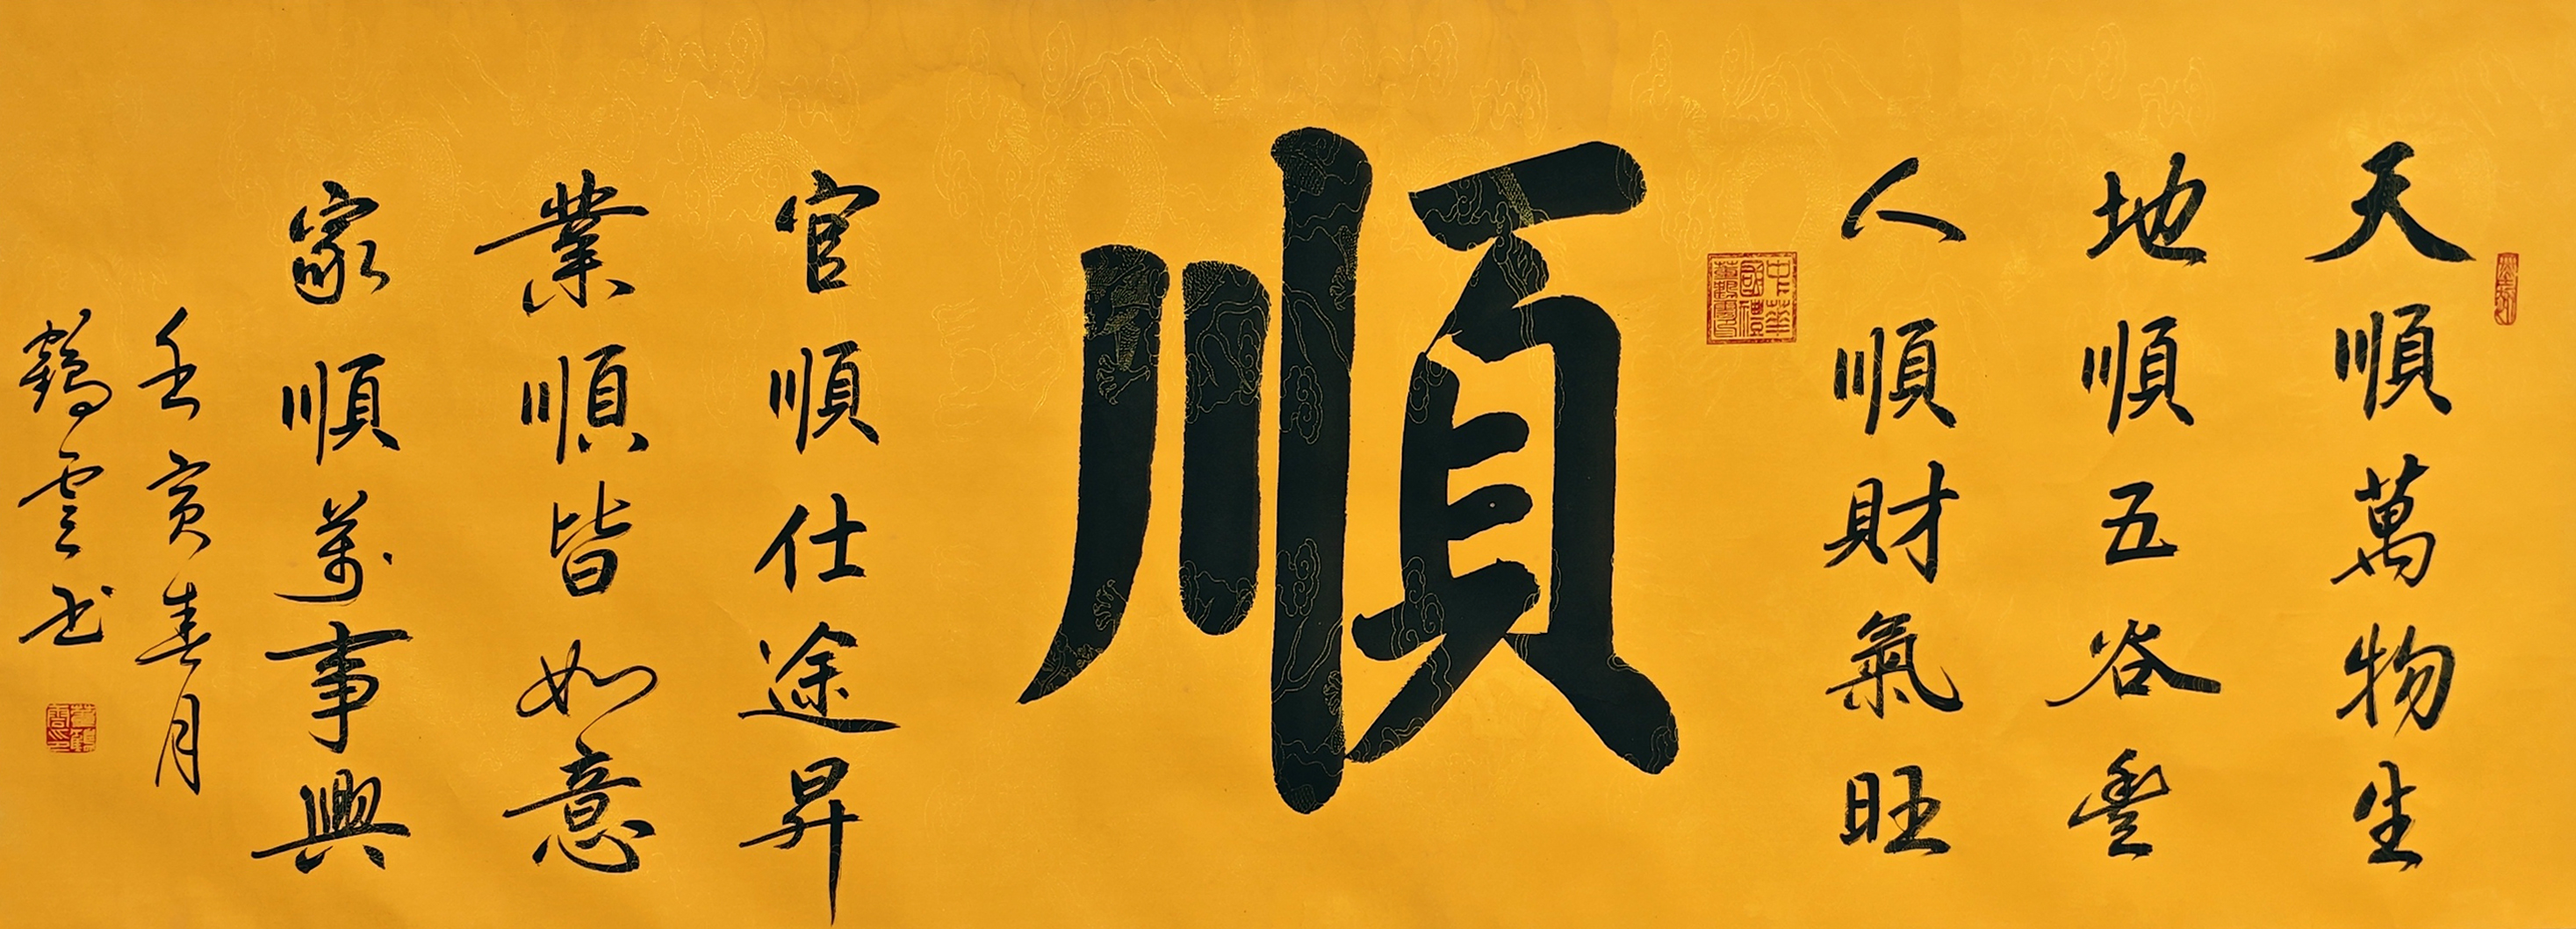 天順萬物生
地順五谷豐
人順財氣旺
順
官順仕途昇
業順皆如意
家順萬事興
壬寅春月
鶴雲书